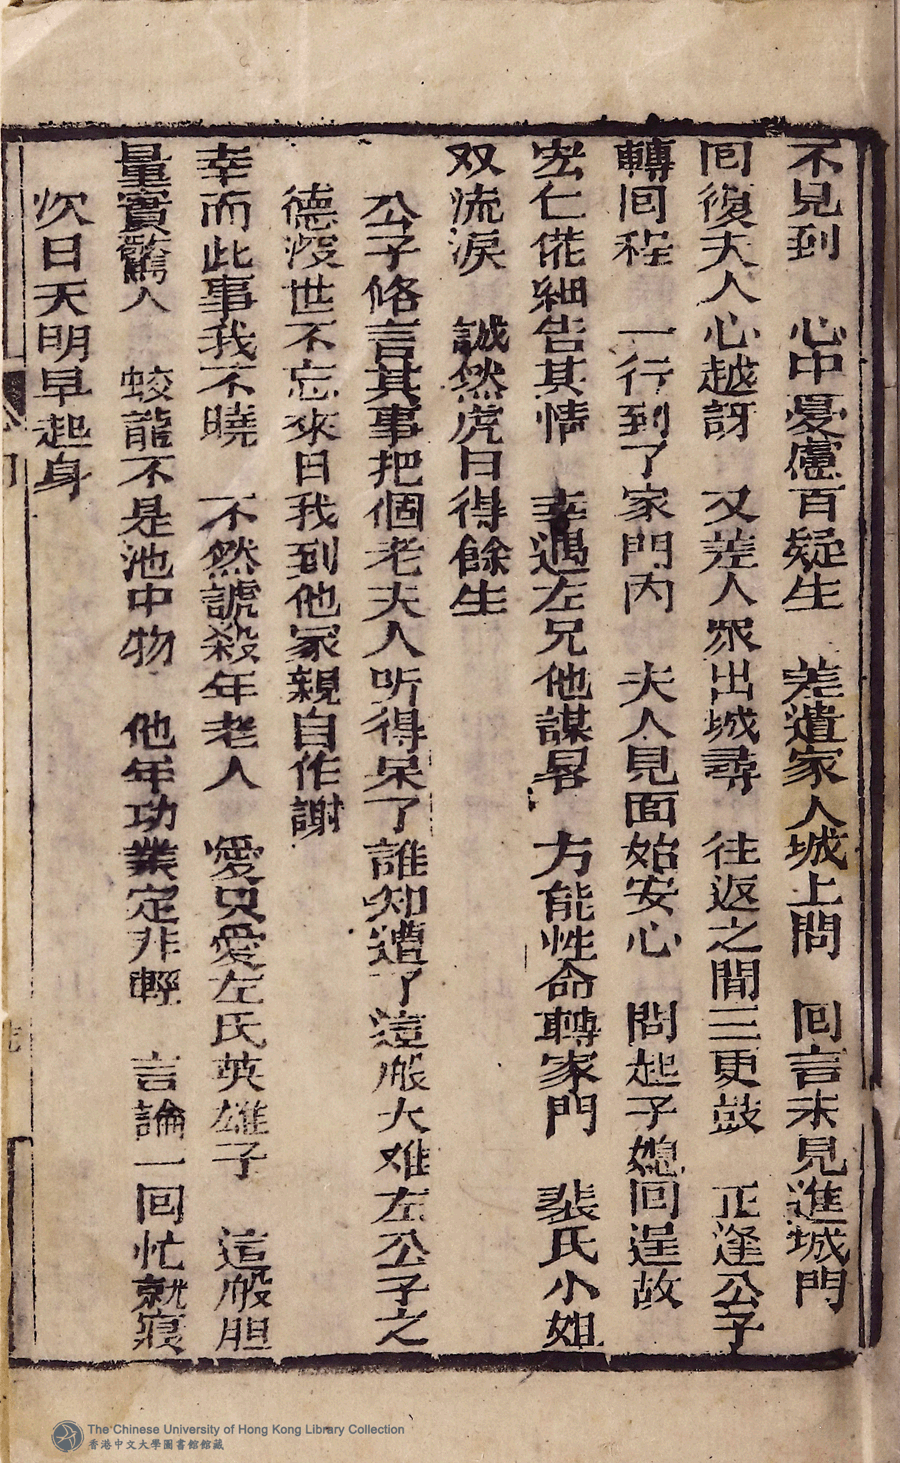 不見到　心中憂慮百疑生　差遣家人城上問　回言未見進城門
回復夫人心越訝　又差人眾出城尋　往返之間三更鼓　正逢公子
轉回程　一行到了家門內　夫人見面始安心　問起子媳回遲故
宏仁從細告其情　幸遇左兄他謀畧　方能性命轉家門　裴氏小姐
双流淚　誠然虎口得餘生
公子俻言其事把個老夫人听得呆了誰知遭了這般大难左公子之
德沒世不忘來日我到他家親自作謝
幸而此事我不曉　不然諕殺年老人　愛只愛左氏英雄子　這般胆
量實驚人　蛟龍不是池中物　他年功業定非輕　言論一回忙就寢
次日天明早起身
The Chinese University of Hong Kong Library Collection
香港中文大學圖書館館藏